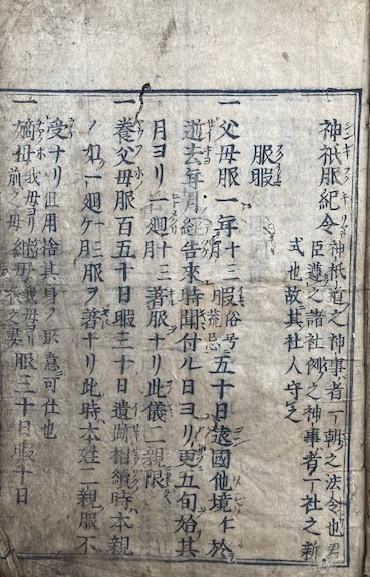 神祇服紀令
神祇道之神事者一朝之法令也君
臣遵之諸社例之神事者一社之新
式也故其社人守之
服暇
一父母服一年十三月暇俗号荒忌五十日逮國他境ニ於
逝去年月經告來時聞付ル日ヨリ更五旬始其
月ヨリ一廻十三月著服ナリ此儀二親限
一養父母服百五十日暇三十日遺跡相續時本親
ノ如一廻十三ケ月服ヲ著ナリ此時本姓二親服不
受ナリ但用捨其身ノ所意可仕也
一嫡母我母ヨリ前之母繼母我母ヨリ後之妻服三十日暇十日